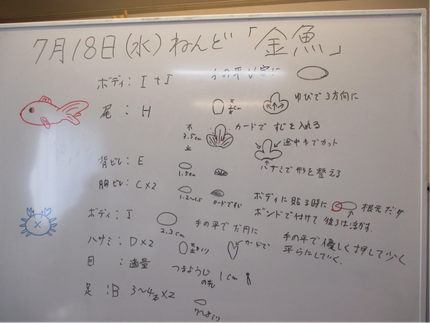 7月18日(水) ねんど「金魚」
ボディ: I+J
尾: H
ゆびで3方向に
3.5cm
カードで すじを入れる
途中までカット
ハサミで形を整える
背ビレ: E
1.5cm
胸ビレ: C×2
1.2〜1.5
カードですじ
ボディに貼る時に 根元だけ
ボンドで付けて 後ろは活かす
ボディ: J
2.3cm
手の平で だ円に
ハサミ: D×2
カードで
手の平で優しく押して少し
平らにしていく。
目: 適量
つまようじの先
1cm
足: B 3〜4本×2